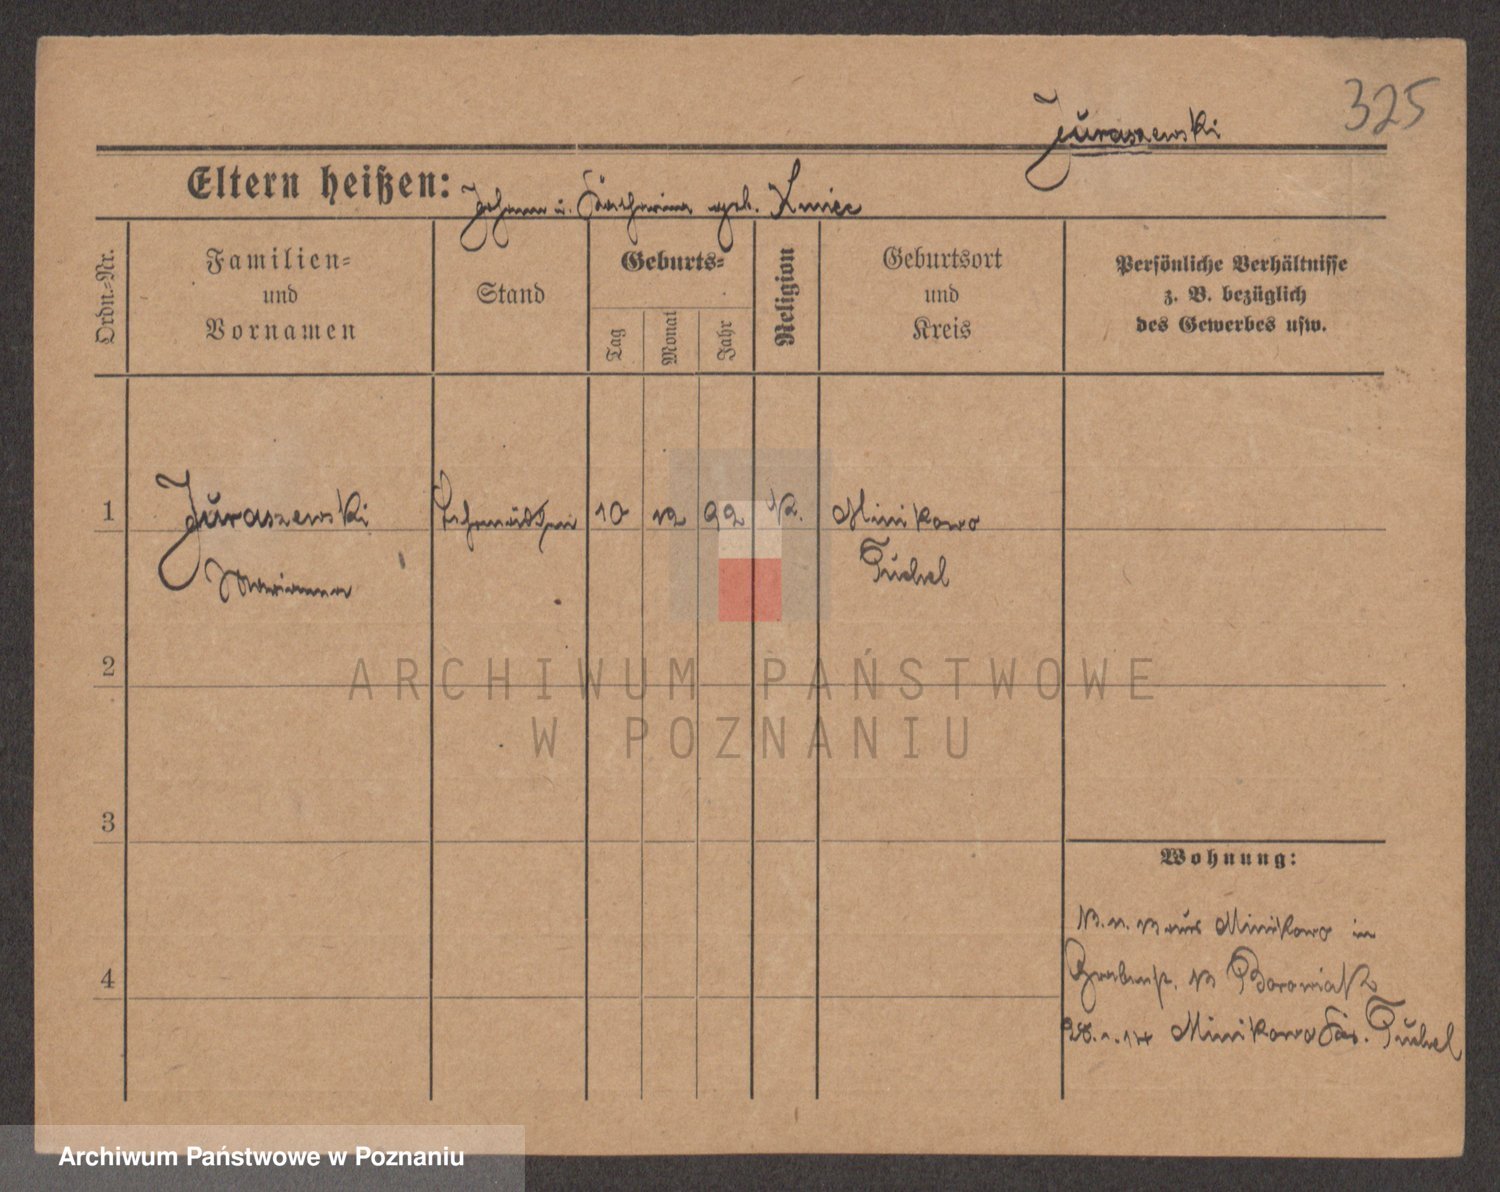 325
Juraszewski
Eltern heißen: Johann u. Katharina geb. Kmiec
Ordn.-Nr.
Familien-
und
Vornamen
Stand
Geburts-
Tag
Monat
Jahr
Religion
Geburtsort
und
Kreis
Persönliche Verhältnisse
z. B. bezüglich
des Gewerbes usw.
1
Juraszewski
10 12 92 K.
Minikowo
Marianna
Tuchel
2
ARCHIWUM PAŃSTWOWE
W POZNANIU
3
Wohnung:
13. 1. 13 aus Minikowo in
Grabenstr. 13 Borowiak
28. 1. 14 Minikowo Krs. Tuchel
4
Archiwum Państwowe w Poznaniu